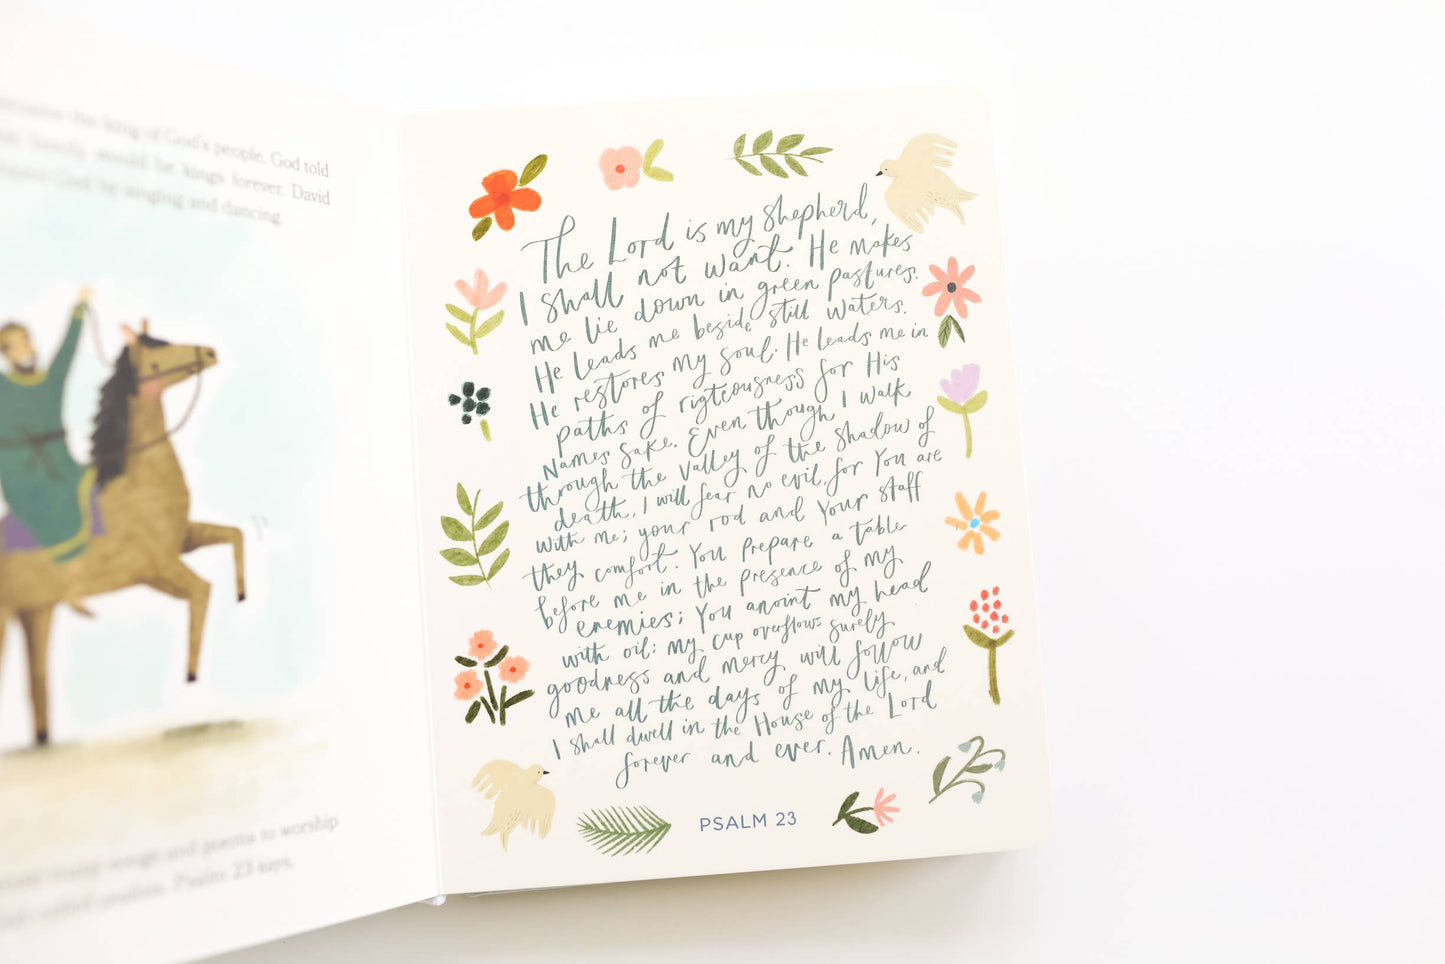 the king of God's people. God told
family would be kings forever. David
God by singing and dancing.
songs and poems to worship
called psalms. Psalm 23 says,
The Lord is my shepherd,
I shall not want. He makes
me lie down in green pastures.
He leads me beside still waters.
He restores my soul. He leads me in
paths of rigteousness for His
Names sake. Even though I walk
through the valley of the shadow of
death, I will fear no evil, for You are
with me; your rod and Your staff
they comfort. You prepare a table
before me in the presence of my
enemies; You anoint my head
with oil: my cup overflows surely
goodness and mercy will follow
me all the days of my life, and
I shall dwell in the House of the Lord
forever and ever. Amen.
PSALM 23